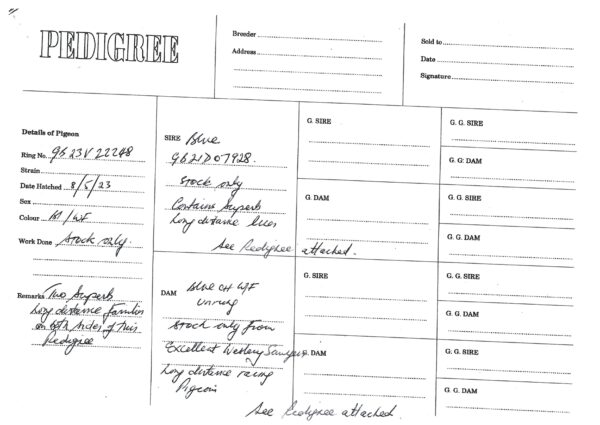 PEDIGREE
Breeder
Address
Sold to
Date
Signature
Details of Pigeon
Ring No. GB 23V 22248
Strain
Date Hatched 8/5/23
Sex
Colour /WF
Work Done Stock only.
Remarks Two Superb
Long distance families
on both sides of this
Pedigree
SIRE Blue
GB21D07928.
Stock only
Contains Superb
Long distance lines
See Pedigree attached.
DAM Blue CH W/F
Stock only from
Excellent Westley Sawyers
Long distance racing
Pigeons
See Pedigree attached.
G. SIRE
G. DAM
G. SIRE
G. DAM
G. G. SIRE
G. G. DAM
G. G. SIRE
G. G. DAM
G. G. SIRE
G. G. DAM
G. G. SIRE
G. G. DAM